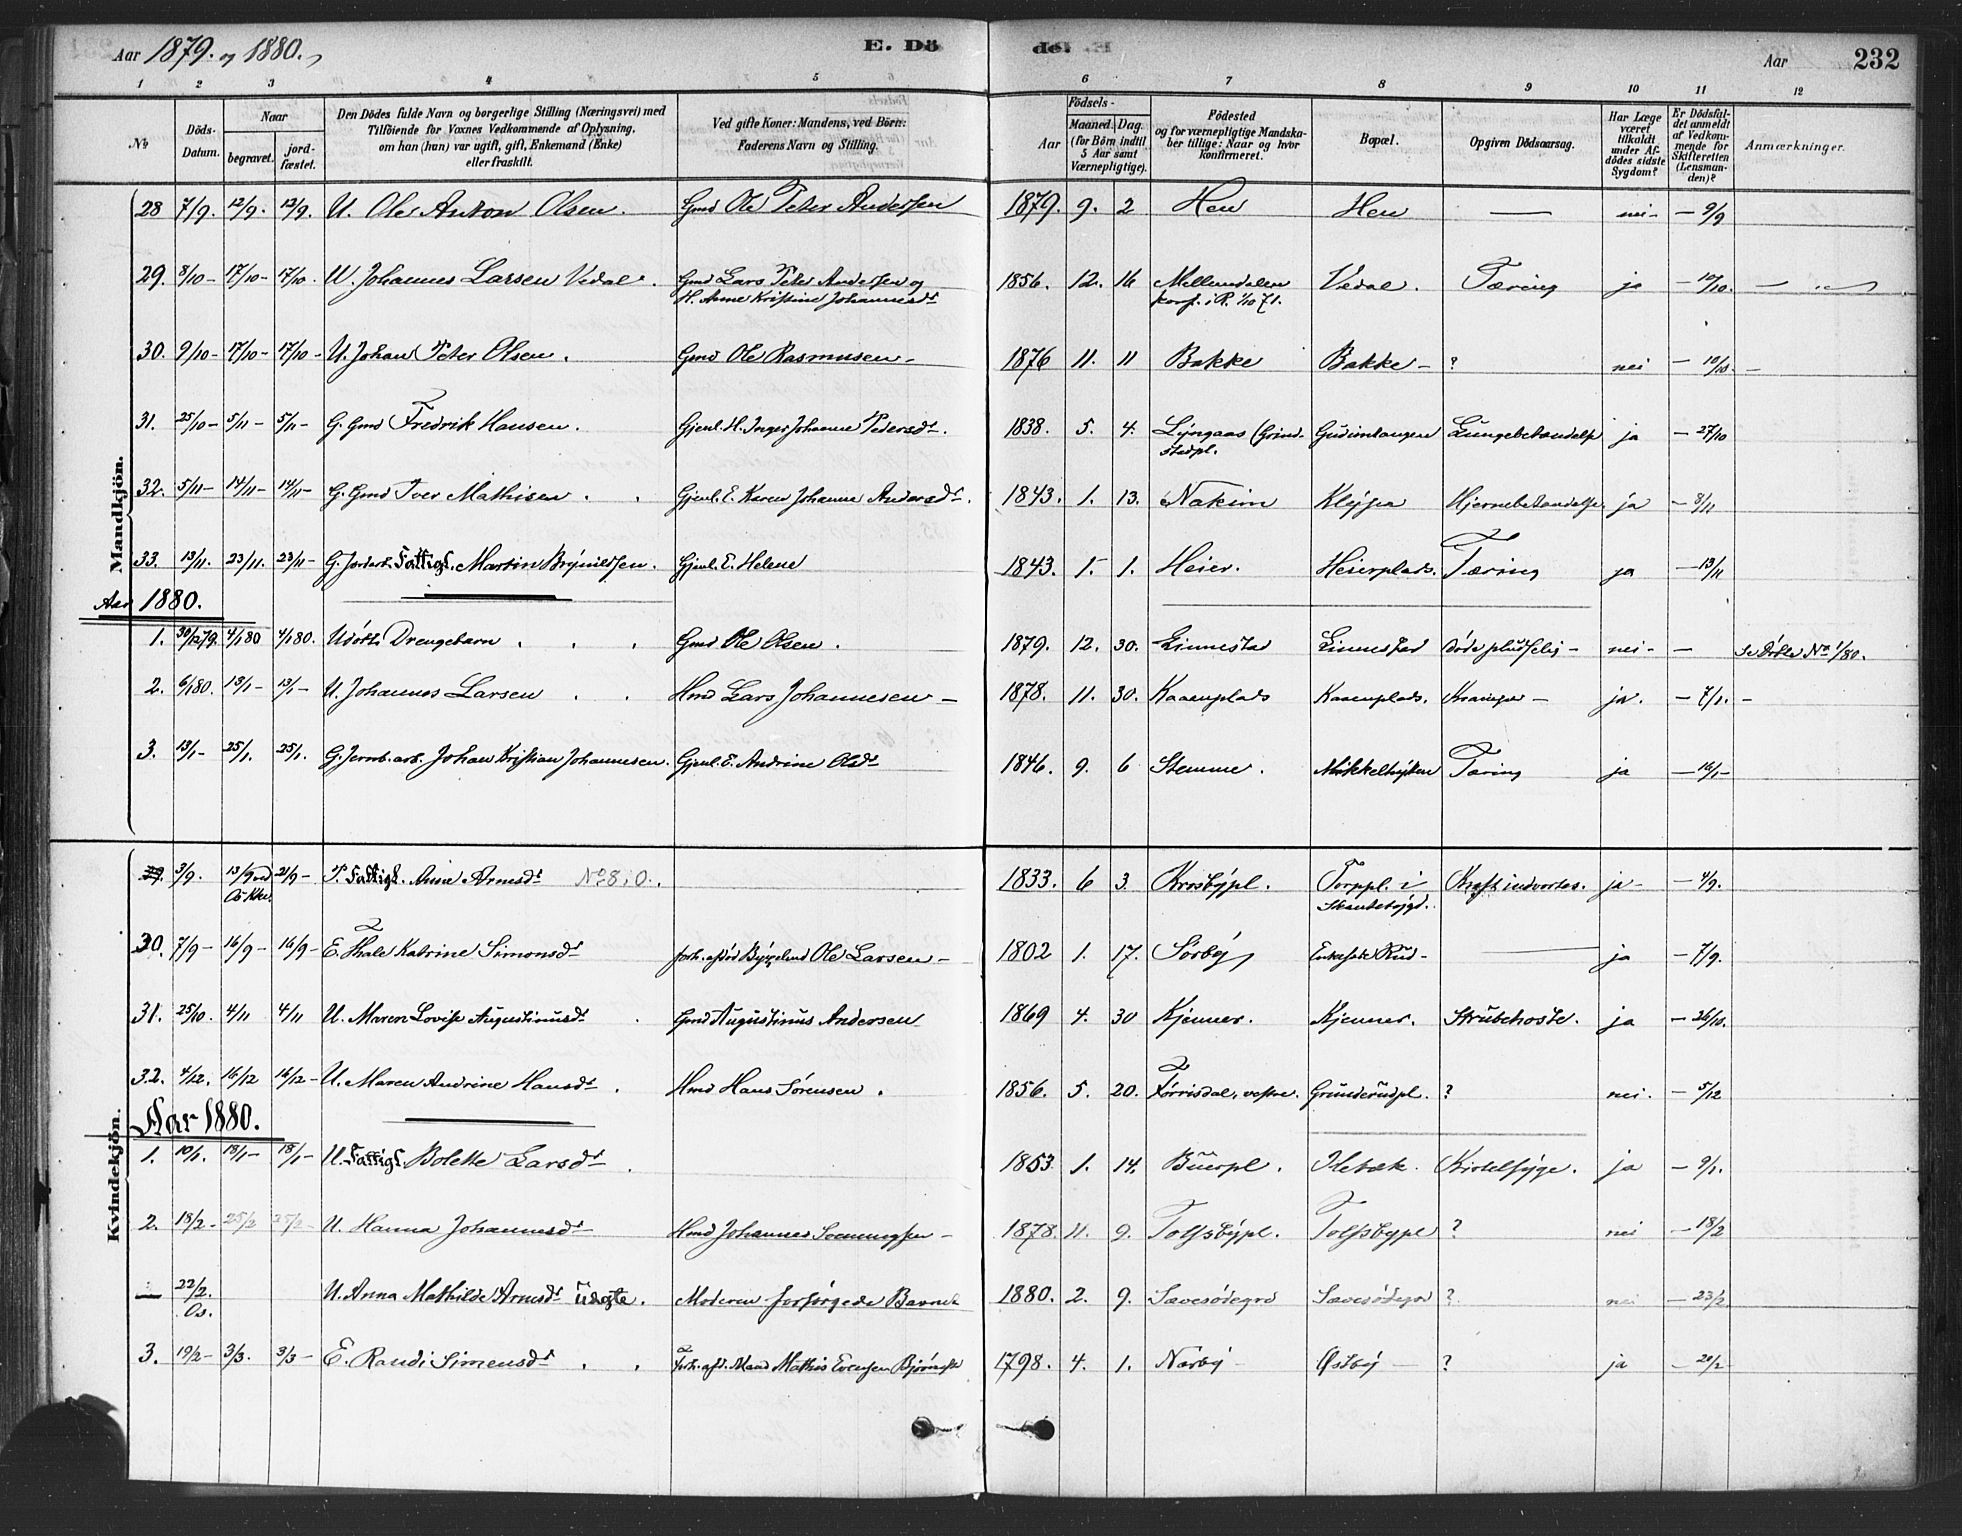 Aar 1879. og 1880.
E. Dö
de. E
Aar
232
1 2 3 4 5 6 7 8 9 10 11 12
No
Döds-Datum.
Naar
begravet.
jordfæstet.
Den Dödes fulde Navn og borgerlige Stilling (Næringsvei) med
Tilföiende for Voxnes Vedkommende af Oplysning,
om han (hun) var ugift, gift, Enkemand (Enke)
eller fraskilt.
Ved gifte Koner: Mandens, ved Börn:
Faderens Navn og Stilling.
Födsels-
Aar
Maaned. Dag.
(for Börn indtil
5 Aar samt
Værnepligtige).
Födested
og for værnepligtige Mandska-
ber tillige: Naar og hvor
konfirmeret.
Bopæl.
Opgiven Dödsaarsag.
Har Læge
været
tilkaldt
under Af-
dödes sidste
Sygdom?
Er Dödsfal-
det anmeldt
af Vedkom-
mende for
Skifteretten
(Lensman-
den)?
Anmærkninger.
Mandkjön.
28 7/9. 12/9. 12/9. U. Ole Anton Olsen. Gmd Ole Peter Andersen 1879. 9. 2 Hen Hen — nei - — 9/9
29. 8/10 - 17/10 - 17/10. U. Johannes Larsen Vedal. Gmd Lars Peter Andersen og 1856. 12. 16 Mellemdalen Vedal. Tæring ja — 10/10.
H. Anne Kristine Johannesdr konf. i R. 1/10 71.
30. 9/10 - 17/10 - 17/10 - U. Johan Peter Olsen. Gmd Ole Rasmusen - 1876 11. 11 Bakke Bakke - ? nei — 10/10 —
31. 25/10 - 5/11 - 5/11 - G. Gmd Fredrik Hansen. Gjenl. H. Inger Johanne Pedersdr. 1838. 5. 4. Lyngaas (Grind- Gudimhaugen Lungebetændelse ja — 27/10
stadpl.
32. 5/11 - 14/11 - 14/11 - G. Gmd Iver Mathisen Gjenl. E. Karen Johanne Andersdr. 1843. 1. 13. Nakim Kleppa Hjernebetændelse. ja — 8/11
33. 13/11. 23/11. 23/11 - G. Jordarb. Fattigl. Martin Brynildsen. Gjenl. E. Helene 1843. 1. 1. Heier. Heierplads. Tæring ja — 13/11
Aar 1880.
1. 30/12 79. 4/1 80 4/1 80. Udöbt Drengebarn Gmd Ole Olsen. 1879. 12. 30. Linnestad Linnestad Döde pludselig - nei - — Se Döbte No 1/80.
2. 6/1 80. 13/1 - 13/1 - U. Johannes Larsen Hmd Lars Johannesen — 1878. 11. 30. Kaaenplads Kaaenplads. Krampe — ja. — 7/1. —
3. 13/1 - 25/1. 25/1. G. Jernb. arb. Johan Kristian Johannesen. Gjenl. E. Andrine Olsdr 1846. 9. 6 Stemme. Mikkelhytten Tæring ja — 16/1 -
Kvindekjön.
29. 3/9. 13/9 ved 21/9 - Fattigl. Anne Arnesdr No 8, O. 1833. 6 3. Krosbypl. Torppl. i Kræft indvortes. ja - — 4/9.
Skautebygd.
30. 7/9 - 16/9 - 16/9 - E. Thale Katrine Simonsdr Ole Larsen — 1802 1. 17. Sörby Rud - — ja — 7/9.
31. 25/10. 4/11 4/11 U. Maren Lovise Augustinusdr Gmd Augustinus Andersen 1869 4. 30 Kjenner. Kjenner. Strubehoste. ja — 26/10.
32. 4/12. 16/12 16/12 - U. Maren Andrine Hansdr. Hmd Hans Sörensen. 1856. 5. 20. Törrisdal, vestre. Grunderudpl. ? nei. — 5/12
Aar 1880.
1. 10/1. 18/1 - 18/1 - U. Fattigl. Bolette Larsdr 1853. 1. 14. Buerpl. Ilebæk. Kirtelsyge. ja — 9/1.
2. 18/2 - 25/2 25/2 - U. Hanna Johannesdr Hmd Johannes — 1878. 11. 9. Tolfsbypl. Tolfsbypl ? nei — 18/2
— 22/2. U. Anna Mathilde Arnesdr uægte. Moderen forsörgede Barnet 1880. 2. 9. ? nei — 23/2
Os.
3. 19/2 - 3/3. 3/3 - E. Randi Simensdr Mathis Evensen 1798. 4. 1. Narby Østby ? ja — 20/2